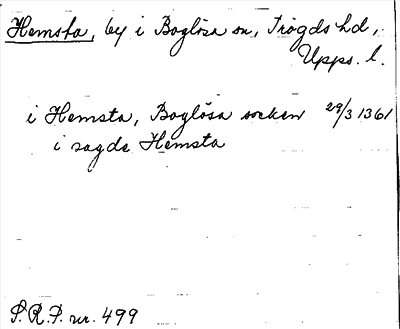 Hemsta, by i Boglösa sn, Trögds hd,
Upps. l.
i Hemsta, Boglösa socken 29/3 1361
i sagde Hemsta
S.R.P. nr. 499